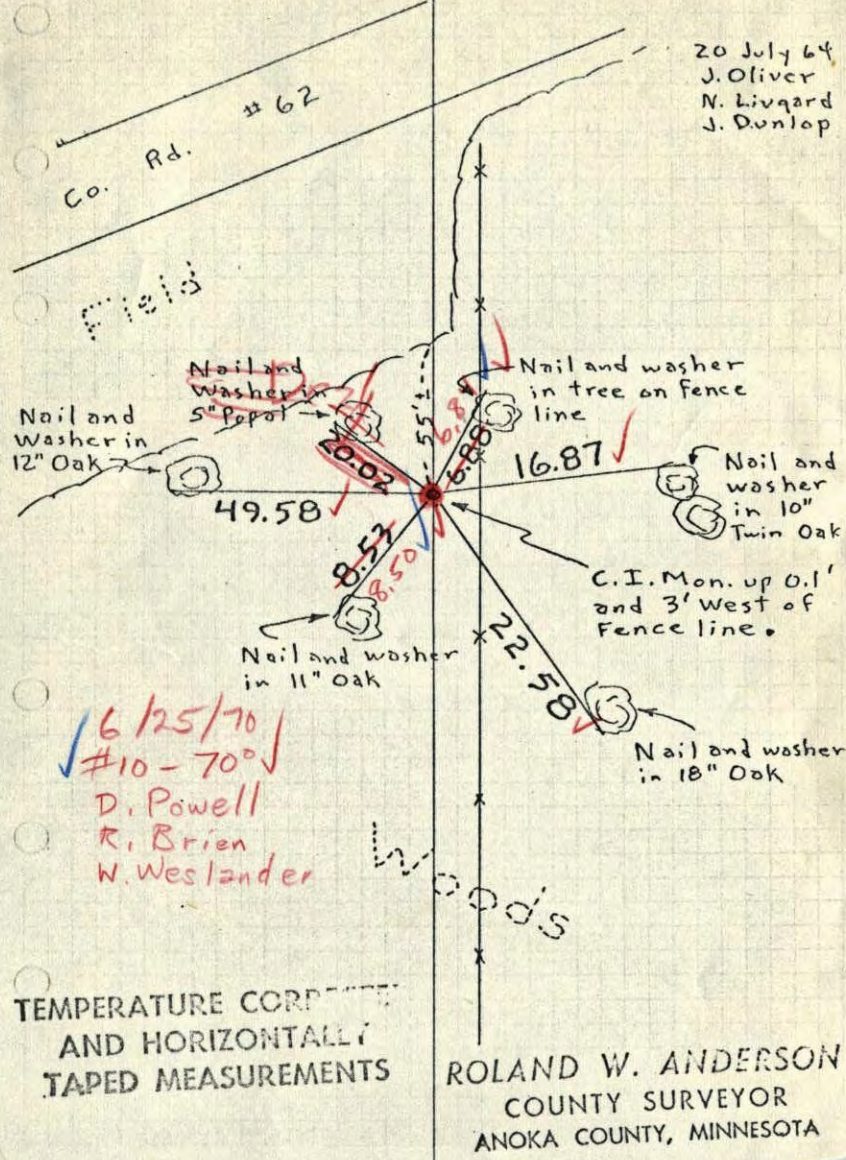 20 July 64
J. Oliver
N. Livgard
J. Dunlop
Co. Rd. # 62
Field
Nail and
Washer in
5" Popal
Nail and washer
in tree on Fence
line
Nail and
Washer in
12" Oak
55'±
6.8
6.88
20.02
16.87
Nail and
washer
in 10"
Twin Oak
49.58
8.53
8.50
C.I. Mon. up 0.1'
and 3' West of
Fence line.
22.58
Nail and washer
in 11" Oak
Nail and washer
in 18" Oak
6/25/70
#10 - 70°
D. Powell
R. Brien
W. Weslander
Woods
TEMPERATURE
AND HORIZONTALLY
TAPED MEASUREMENTS
ROLAND W. ANDERSON
COUNTY SURVEYOR
ANOKA COUNTY, MINNESOTA